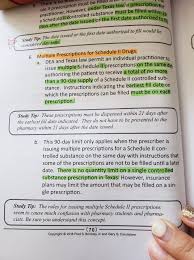 must be filled within
after the date issued or the first date authorized to be
Study Tip: The date issued or the first date authorized to fill would be
considered
c. Multiple Prescriptions for Schedule II Drugs
a. DEA and Texas law permit an individual practitioner to
issue multiple Schedule II prescriptions on the same
authorizing the patient to receive a total of no more
than a 90-day supply of a Schedule II controlled sub-
stance. Instructions indicating the earliest fill date on
which the prescriptions can be filled must be on each
prescription.
Study Tip: These prescriptions must be dispensed within 21 days after
the earliest fill date indicated. They do not have to be presented to the
pharmacy within 21 days after the date issued.
b. This 90-day limit only applies when the prescriber is
issuing multiple prescriptions for a Schedule II con-
trolled substance on the same day with instructions that
some of the prescriptions are not to be filled until a later
date. There is no quantity limit on a single controlled
substance prescription in Texas. However, insurance
plans may limit the amount that may be filled on a sin-
gle prescription.
Study Tip: The rules for issuing multiple Schedule II prescriptions
seem to cause much confusion with pharmacy students and pharma-
cists. Be sure you understand this concept.
(70)
Copyright © 2018 Fred S. Brinkley, Jr. and Gary G. Cacciatore